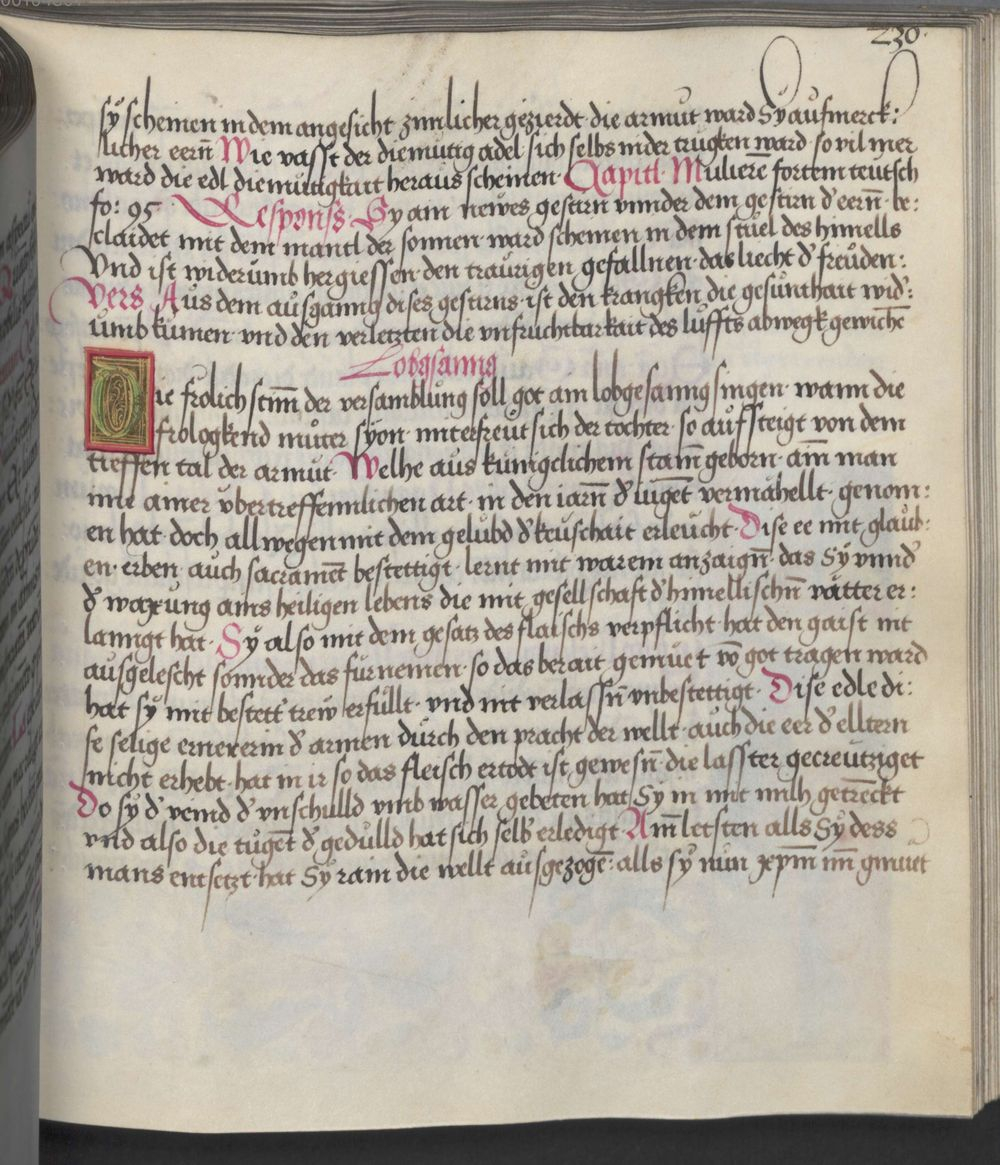 230.
sÿ scheinen in dem angesicht zimlicher gezierdt die armut ward Sÿ aufmerck:
licher eern̄ Wie vasst der diemütig adel sich selbs nider trugken ward so vil mer
ward die edl diemütigkait heraus scheinen Capitl Mulierē fortem teutsch
fo: 95 Respons Sy ain newes gestirn vnnder dem gestirn d' eern̄ be:
claidet mit dem mantl der sonnen ward scheinen in dem stuel des himells
Vnd ist widerumb hergiessen den traurigen gefallnen das liecht d' freüden:
Vers Aus dem ausganng dises gestirns ist den krangken die gesunthait wid':
umb kumen vnd den verletzten die vnfruchtbarkait des luffts abwegk gewichē
Lobgsanng
Die frölich stim̄ der versamblung soll got am lobgesanng singen wann die
frologkend muter sÿon miterfreut sich der tochter so aufsteigt von dem
tieffen tal der armut Welhe aus kunigclichem stam̄ geborn am̄ man
mit ainer vbertreffennlichen art in den iarn̄ d' iugēt vermähellt genom:
en hat doch allwegen mit dem gelubd d' keuschait erleucht Dise ee mit glaub:
en erben auch sacramēt bestettigt lernt mit warem anzaign̄ das Sÿ vnnd'
d' waxung ains heiligen lebens die mit gesellschaft d' himellischn̄ vätter er:
lanngt hat Sÿ also mit dem gesatz des flaischs verpflicht hat den gaist nit
ausgelescht sonnder das furnemen so das berait gemuet vō got tragen ward
hat sÿ mit bestett trew erfüllt vnd nit verlassn̄ vnbestettigt Dise edle di:
se selige ernererin d' armen durch den pracht der wellt auch die eer d' elltern
nicht erhebt hat in ir so das fleisch ertödt ist gewesn̄ die lasster gecreutziget
Do sÿ d' veind d' vnschulld vmb wasser gebeten hat Sy in mit milh getrēckt
vnd also die tugēt d' gedulld hat sich selb' erledigt Am̄ letsten alls Sÿ dess
mans entsetzt hat Sÿ rain die wellt ausgezogē alls sÿ nun xep̄m im̄ gmuet